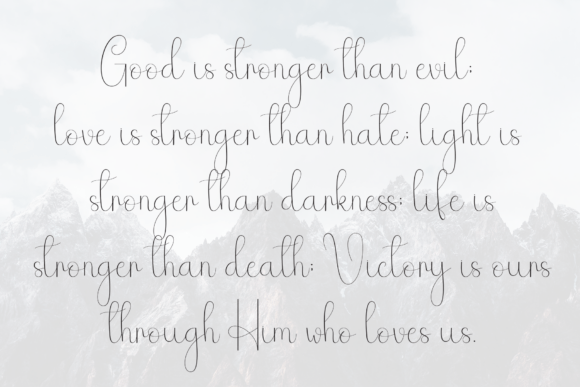 Good is stronger than evil;
love is stronger than hate; light is
stronger than darkness; life is
stronger than death; Victory is ours
through Him who loves us.